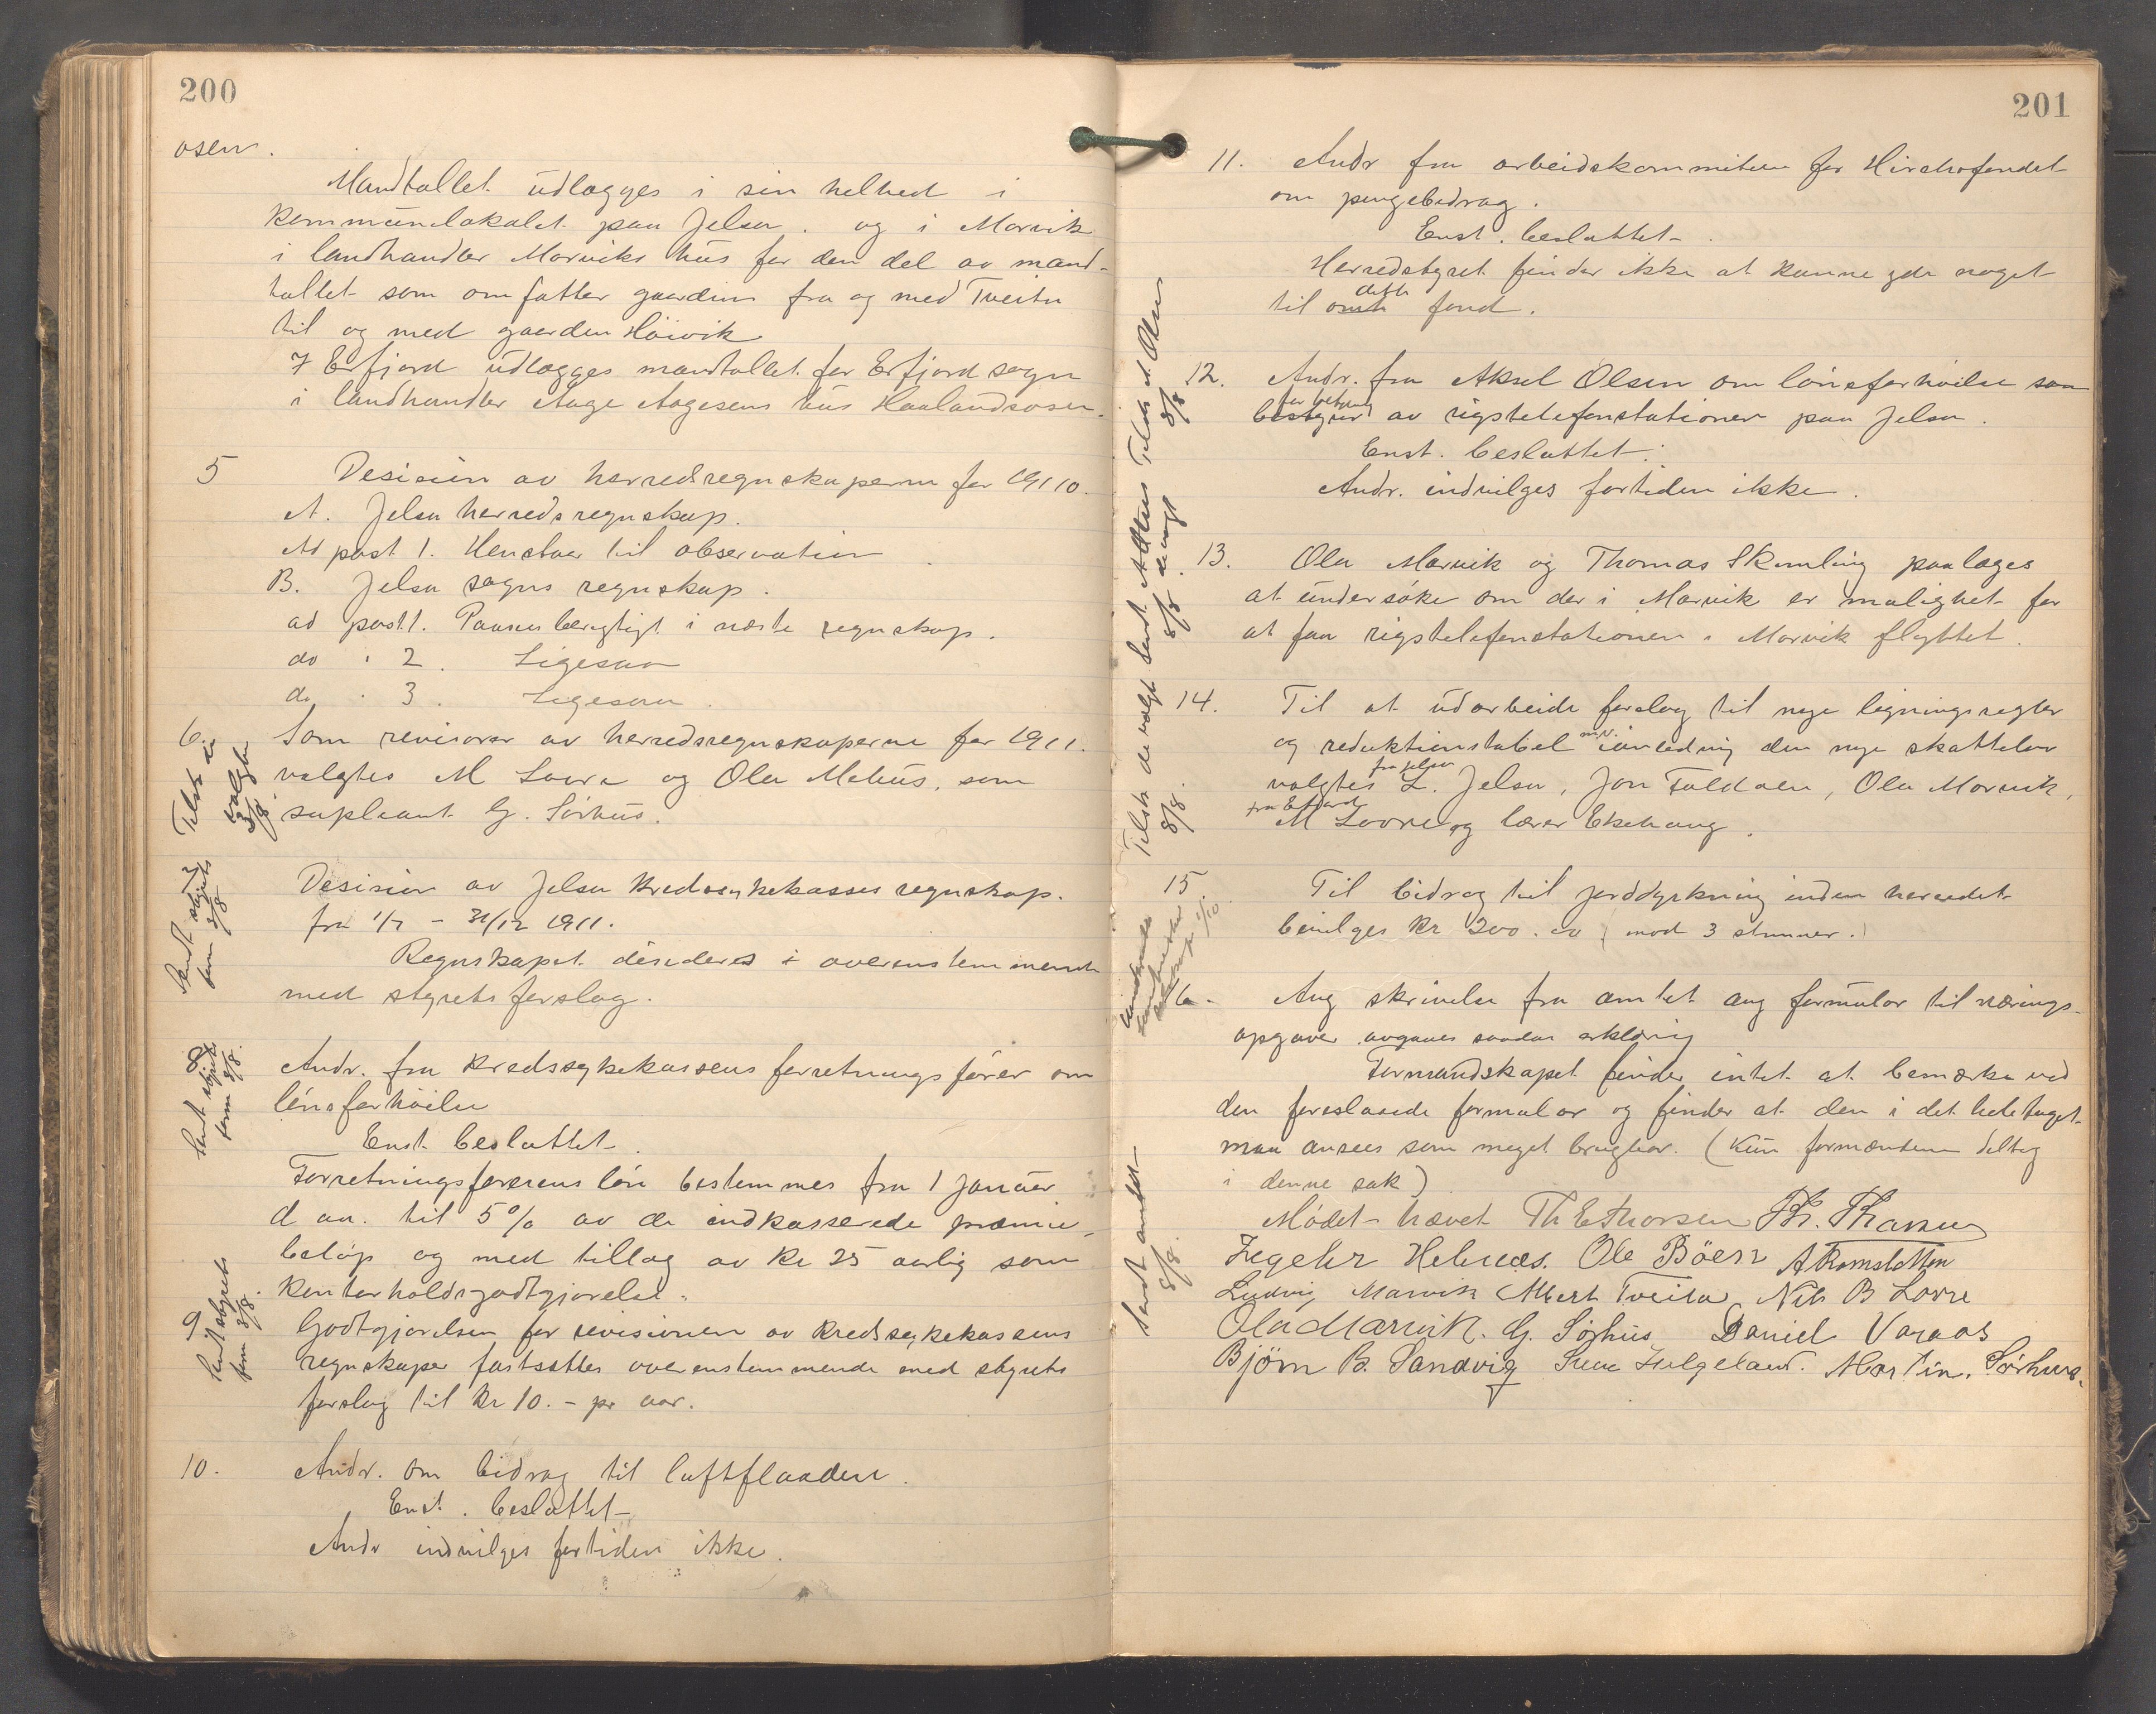 200
osen.
Mandtallet udlægges i sin helhed i
kommunelokalet paa Jelsa. og i Marvik
i landhandler Marviks hus for den del av mand-
tallet som omfatter gaardene fra og med Tveita
til og med gaarden Høivik
I Erfjord udlægges mandtallet for Erfjord sogn
i landhandler Aage Aagesens hus Haalandsosen.
5 Desision av herredsregnskaperne for 1910.
A. Jelsa herredsregnskap.
Ad post 1. Henstaar til observation
B. Jelsa sogns regnskap.
ad post 1. Paases berigtigt i næste regnskap.
do " 2. Ligesaa
do " 3. Ligesaa.
6. Som revisorer av herredsregnskaperne for 1911.
valgtes M Lovra og Ola Mehus, som
supleant G. Sørhus.
Tilsk de valgte 8/8.
7 Desision av Jelsa Kredssykekasses regnskap.
fra 1/7 - 31/12 1911.
Regnskapet desideres i overenstemmende
med styrets forslag.
Sendt styrets form 8/8
8 Andr. fra Kredssykekassens forretningsfører om
lønsforhøielse
Enst. besluttet.
Forretningsførerens løn bestemmes fra 1 januar
d aa. til 5% av de indkasserede præmie-
beløp og med tillæg av kr 25 aarlig som
kontorholdsgodtgjørelse.
Sendt styrets form 8/8.
9 Godtgjørelsen for revisionen av kredssykekassens
regnskaper fastsættes overenstemmende med styrets
forslag til kr 10. - pr aar.
Sendt styrets form 8/8.
10. Andr. om bidrag til luftflaaden.
Enst. besluttet
Andr indvilges fortiden ikke.
201
11. Andr fra arbeidskommiteen for Hirschsfondet
om pengebidrag.
Enst. besluttet.
Herredstyret finder ikke at kunne yde noget
til dette fond.
12. Andr. fra Aksel Olsen om lønsforhøielse som
bestyrer av rigstelefonstationen paa Jelsa.
Enst. besluttet:
Andr. indvilges fortiden ikke.
Tilsk A. Olsen 8/8
13. Ola Marvik og Thomas Skimling paalægges
at undersøke om der i Marvik er mulighet for
at faa rigstelefonstationen i Marvik flyttet.
14. Til at udarbeide forslag til nye ligningsregler
og reduktionstabel m.v. i anledning den nye skattelov
valgtes fra Jelsa L. Jelsa, Jon Foldøen, Ola Marvik,
fra Erfjord M Lovra og lærer Ekehaug.
Tilsk de valgte 8/8.
15 Til bidrag til jorddyrkning inden herredet
bevilges kr 200.00 (mod 3 stemmer.)
16. Ang skrivelse fra amtet ang formular til nærings-
opgaver avgaves saadan erklæring
Formandskapet finder intet at bemærke ved
den foreslaaede formular og finder at den i det heletaget
maa ansees som meget brugbar. (Kun formændene deltog
i denne sak)
Sendt amtet 8/8.
Mødet hævet Th E Thorsen Th. Thorsen
Zegehr Helnæs. Ole Bøen A Ramsletten
Ludvig Marvik Albert Tveita Nils B Lovre
Ola Marvik. G. Sørhus Daniel Varaas
Bjørn B. Sandvig Helgeland. Martin. Sørhus.